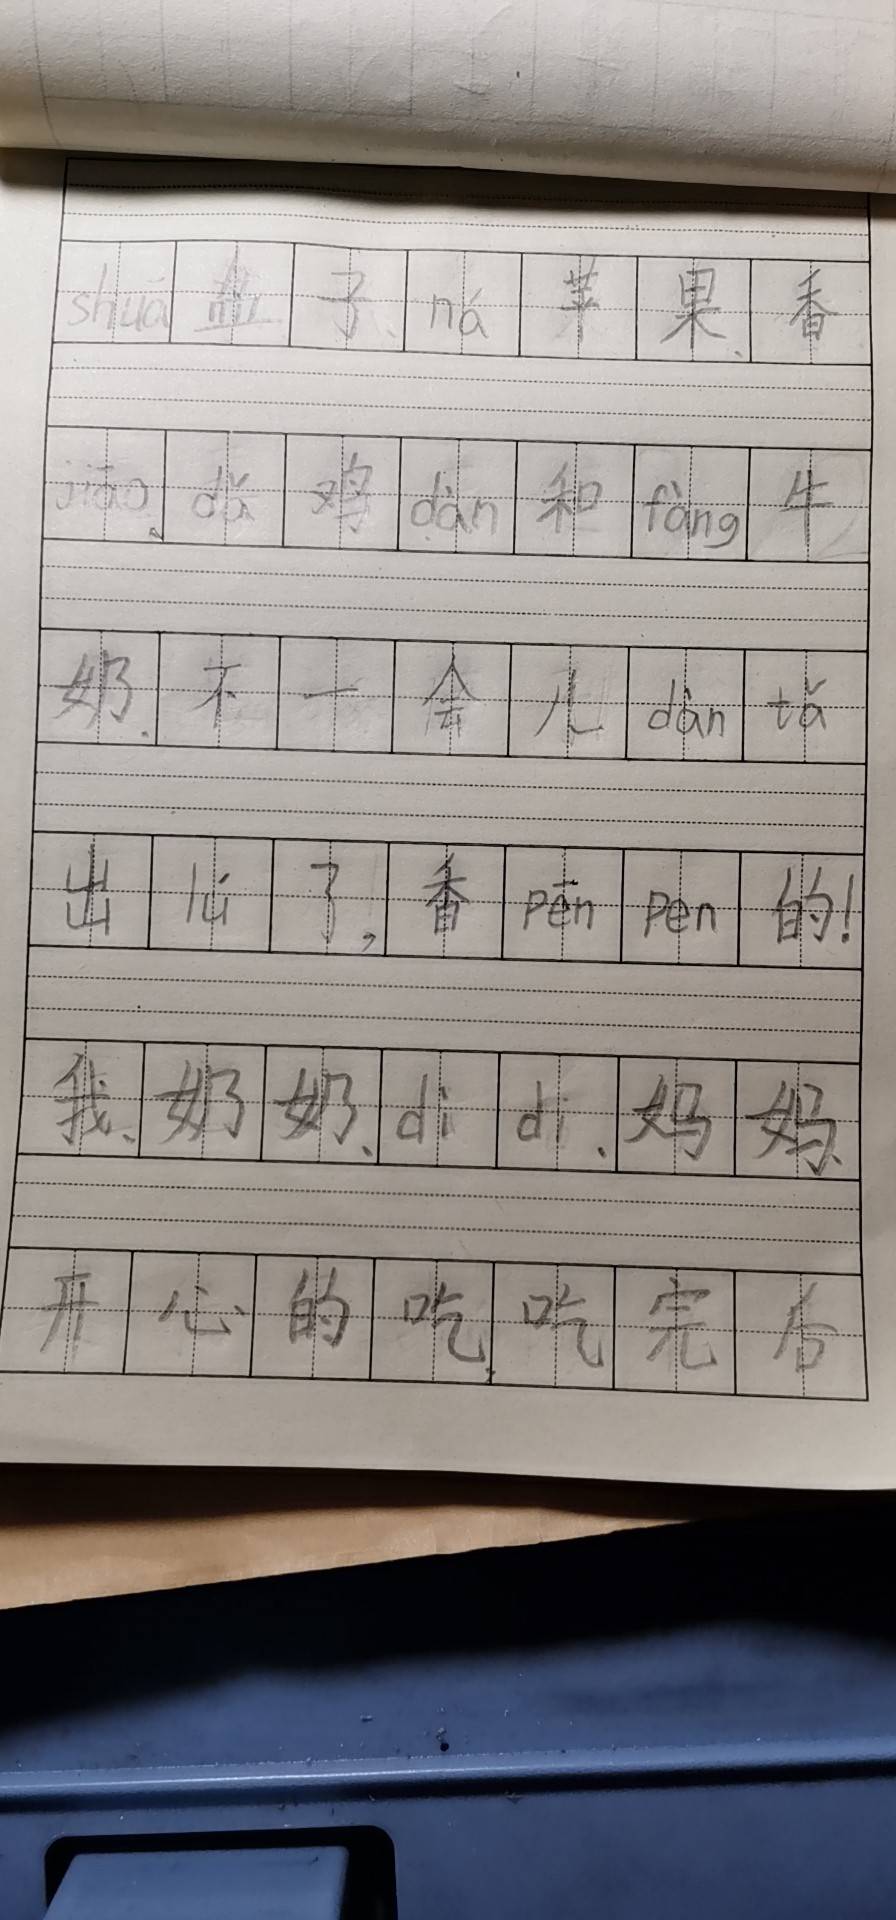 shuā盘子、ná苹果、香
jiāo、dǎ鸡dàn和fàng牛
奶.不一会儿dàn tǎ
出lú了,香pēn pen的!
我、奶奶、dì di、妈妈、
开心的吃,吃完后